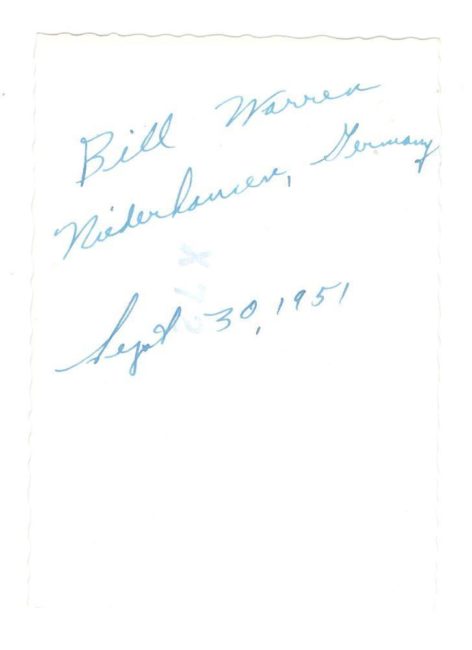 Bill Warren
Niederhausen, Germany
Sept 30, 1951